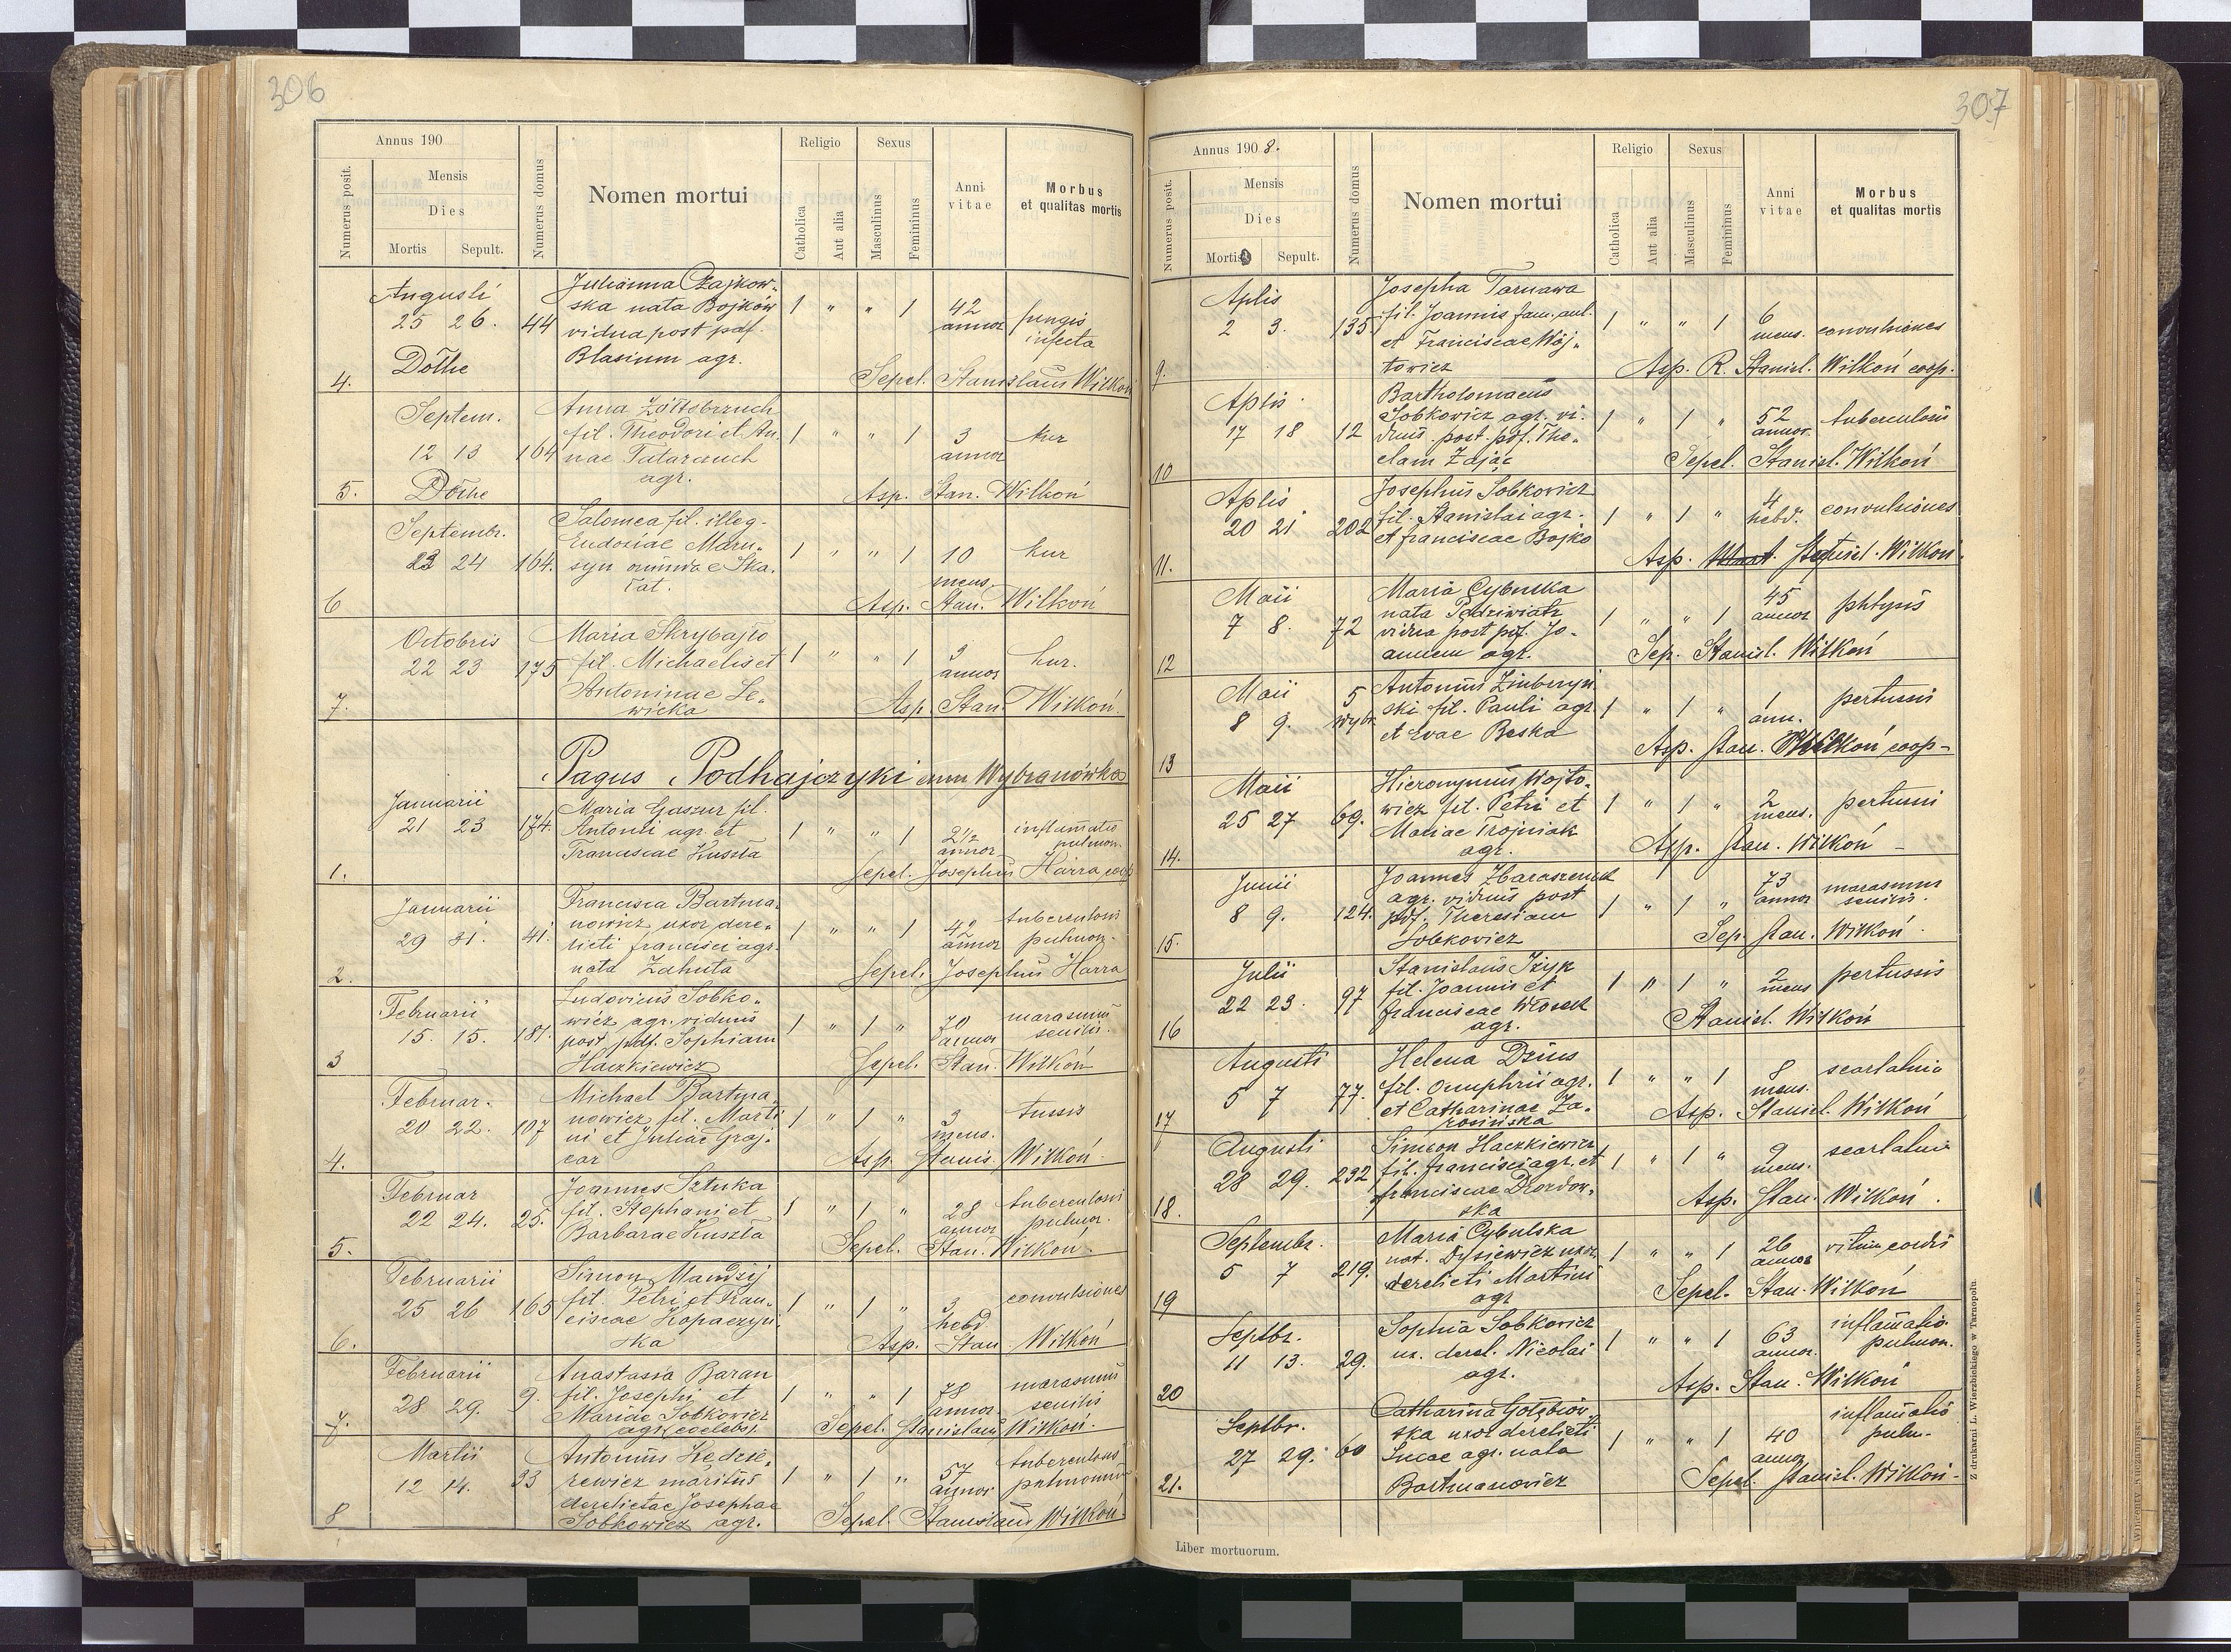 306
Annus 190
Numerus posit.
Mensis
Dies
Mortis Sepult.
Numerus domus
Nomen mortui
Religio
Catholica
Aut alia
Sexus
Masculinus
Femininus
Anni vitae
Morbus
et qualitas mortis
Augusti
25 26. 44
Dōthe
4.
Julianna Czajkow-
ska nata Bojków
vidua post pdf.
Blasium agr.
1 " " 1 42 annor fungis infecta
Sepel. Stanislaus Wilkoń
Septem.
12 13 164
Dōthe
5.
Anna
fil. Theodori et An-
nae Tatarczuch
agr.
1 " " 1 3 annor kur
Asp. Stan. Wilkoń
Septembr.
23 24 164.
6
Salomea fil. illeg.
Eudoxiae Maru-
syn oriunda e Ska-
łat.
1 " " 1 10 mens. kur
Asp. Stan. Wilkoń
Octobris
22 23 175
7.
Maria Skrybajło
fil. Michaelis et
Antoninae Le-
wicka
1 " " 1 3 annor kur.
Asp. Stan. Wilkoń.
Pagus Podhajczyki cum Wybranówka
Januarii
21 23 174.
1.
Maria Gaszur fil.
Antonii agr. et
Franciscae Kuszła
1 " " 1 2 1/2 annor inflamatio pulmon.
Sepel. Josephus Harra coop
Januarii
29 31. 41.
2.
Francisca Bartma-
nowicz, uxor dere-
licti Francisci agr.
nata Zahuta
1 " " 1 42 annor tuberculosis pulmon.
Sepel. Josephus Harra
Februarii
15. 15. 181.
3
Ludovicus Sobko-
wicz agr. viduus
post pdf. Sophiam
Haczkiewicz
1 " 1 " 70 annor marasmus senilis.
Sepel. Stan. Wilkoń
Februar.
20 22. 107
4.
Michael Bartma-
nowicz, fil. Marti-
ni et Juliae Graj-
car
1 " 1 " 3 mens. tussis
Asp. Stanis. Wilkoń
Februar
22 24. 25.
5.
Joannes Sztuka
fil. Stephani et
Barbarae Kuszła
1 " 1 " 28 annor tuberculosis pulmon.
Sepel. Stan. Wilkoń.
Februarii
25 26 165
6.
Simon Mandzij
fil. Petri et Fran-
ciscae Kopaczyń-
ska
1 " 1 " 3 hebd convulsiones
Asp. Stan. Wilkoń
Februarii
28 29. 9.
7.
Anastasia Baran
fil. Josephi et
Mariae Sobkowicz
agr. (coelebs).
1 " " 1 78 annor. marasmus senilis
Sepel. Stanislaus Wilkoń.
Martii
12 14. 33
8
Antonius Kędzie-
rewicz maritus
derelictae Josephae
Sobkowicz agr.
1 " 1 " 57 annor tuberculosis pulmonum
Sepel. Stanislaus Wilkoń.
307
Annus 1908.
Numerus posit.
Mensis
Dies
Mortis Sepult.
Numerus domus
Nomen mortui
Religio
Catholica
Aut alia
Sexus
Masculinus
Femininus
Anni vitae
Morbus
et qualitas mortis
Aplis
2 3. 135.
9.
Josepha Tarnawa
fil. Joannis fam. aul.
et Franciscae Wój-
towicz
1 " " 1 6 mens. convulsiones
Asp. R. Stanisl. Wilkoń coop.
Aplis
17 18 12
10
Bartholomaeus
Sobkowicz agr. vi-
duus post. pdf. The-
clam Zając
1 " 1 " 52 annor. tuberculosis
Sepel. Stanisl. Wilkoń
Aplis
20 21 202
11.
Josephus Sobkowicz
fil. Stanislai agr.
et Franciscae Bojko
1 " 1 " 4 hebd. convulsiones
Asp. Stanisl. Wilkoń.
Maii
7 8. 72
12
Maria Cybulska
nata Podziwiatr
vidua post pdf. Jo-
annem agr.
1 " " 1 45 annor phtysis
Sep. Stanisl. Wilkoń
Maii
8 9. 5 wybr.
13
Antonius
ski fil. Pauli agr.
et Evae Beska
1 " 1 " 1 ann. pertussis
Asp. Stan. Wilkoń coop-
Maii
25 27 69.
14.
Hieronymus Wojto-
wicz fil. Petri et
Mariae Trojniak
agr.
1 " 1 " 2 mens. pertussi
Asp. Stan. Wilkoń -
Junii
8 9. 124.
15.
Joannes Zbaraszczuk
agr. viduus post
pdf. Theresiam
Sobkowicz
1 " 1 " 73 annor marasmus senilis.
Sep. Stan. Wilkoń.
Julii
22 23. 97
16
Stanislaus Iżyk
fil. Joannis et
Franciscae Włosek
agr.
1 " 1 " 2 mens pertussis
Stanisl. Wilkoń
Augusti
5 7 77.
17
Helena Dzius
fil. Onuphrii agr.
et Catharinae Za-
rosińska
1 " " 1 8 mens. scarlatina
Asp. Stanisl. Wilkoń
Augusti
28 29. 232
18.
Simeon Haczkiewicz
fil. Francisci agr. et
Franciscae Drozdow-
ska
1 " 1 " 9 mens. scarlatina
Asp. Stan. Wilkoń.
Septembr.
5 7 219.
19
Maria Cybulska
nat. Dysiewicz uxor
derelicti Martini
agr
1 " " 1 26 annor vitium cordis
Sepel. Stan. Wilkoń
Septbr.
11 13. 29.
20
Sophia Sobkowicz
ux. derel. Nicolai
agr.
1 " " 1 63 annor. inflamatio pulmon.
Asp. Stan. Wilkoń
Septbr.
27 29. 60
21.
Catharina Gołębiow-
ska uxor derelicti
Lucae agr. nata
Bartmanowicz
1 " " 1 40 annor inflamatio pulm.
Sepel. Stanisl. Wilkoń-
Liber mortuorum.
Z drukarni L. Wierzbickiego w Tarnopolu.